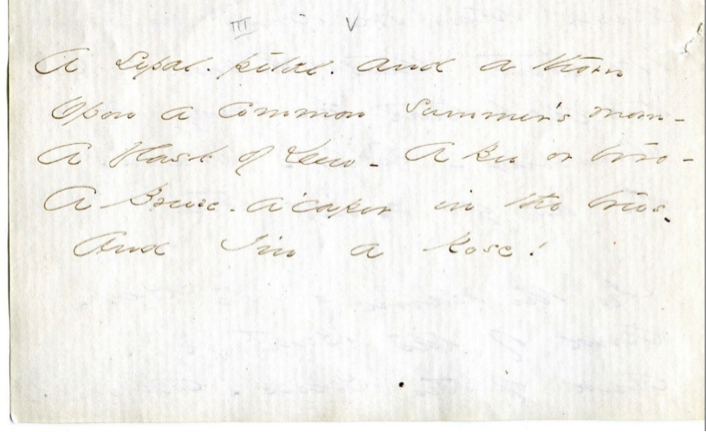 III V
A Sepal. petal. and a thorn
Upon a Common Summer's morn -
A Flask of Dew - A Bee or two -
A Breeze. a'caper in the trees.
And I'm a Rose!